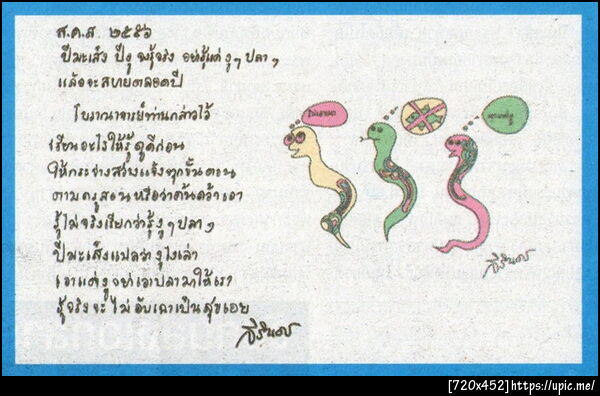 ส.ค.ส. ๒๕๕๖
ปีมะเส็ง ปีงู จงรู้จริง อย่ารู้แต่ งูๆ ปลาๆ
แล้วจะสบายตลอดปี
โบราณาจารย์ท่านกล่าวไว้
เรียนอะไรให้รู้ดูดีก่อน
ให้กระจ่างสว่างแจ้งทุกขั้นตอน
ตามครูสอนหรือว่าค้นคว้าเอา
รู้ไม่จริงเรียกว่ารู้งูๆปลาๆ
ปีมะเส็งแปลว่างูไงเล่า
เอาแต่งูอย่าเอาปลามาให้เรา
รู้จริงจะไม่อับเฉาเป็นสุขเอย
สิรินธร
สิรินธร
[720x452] https://upic.me/